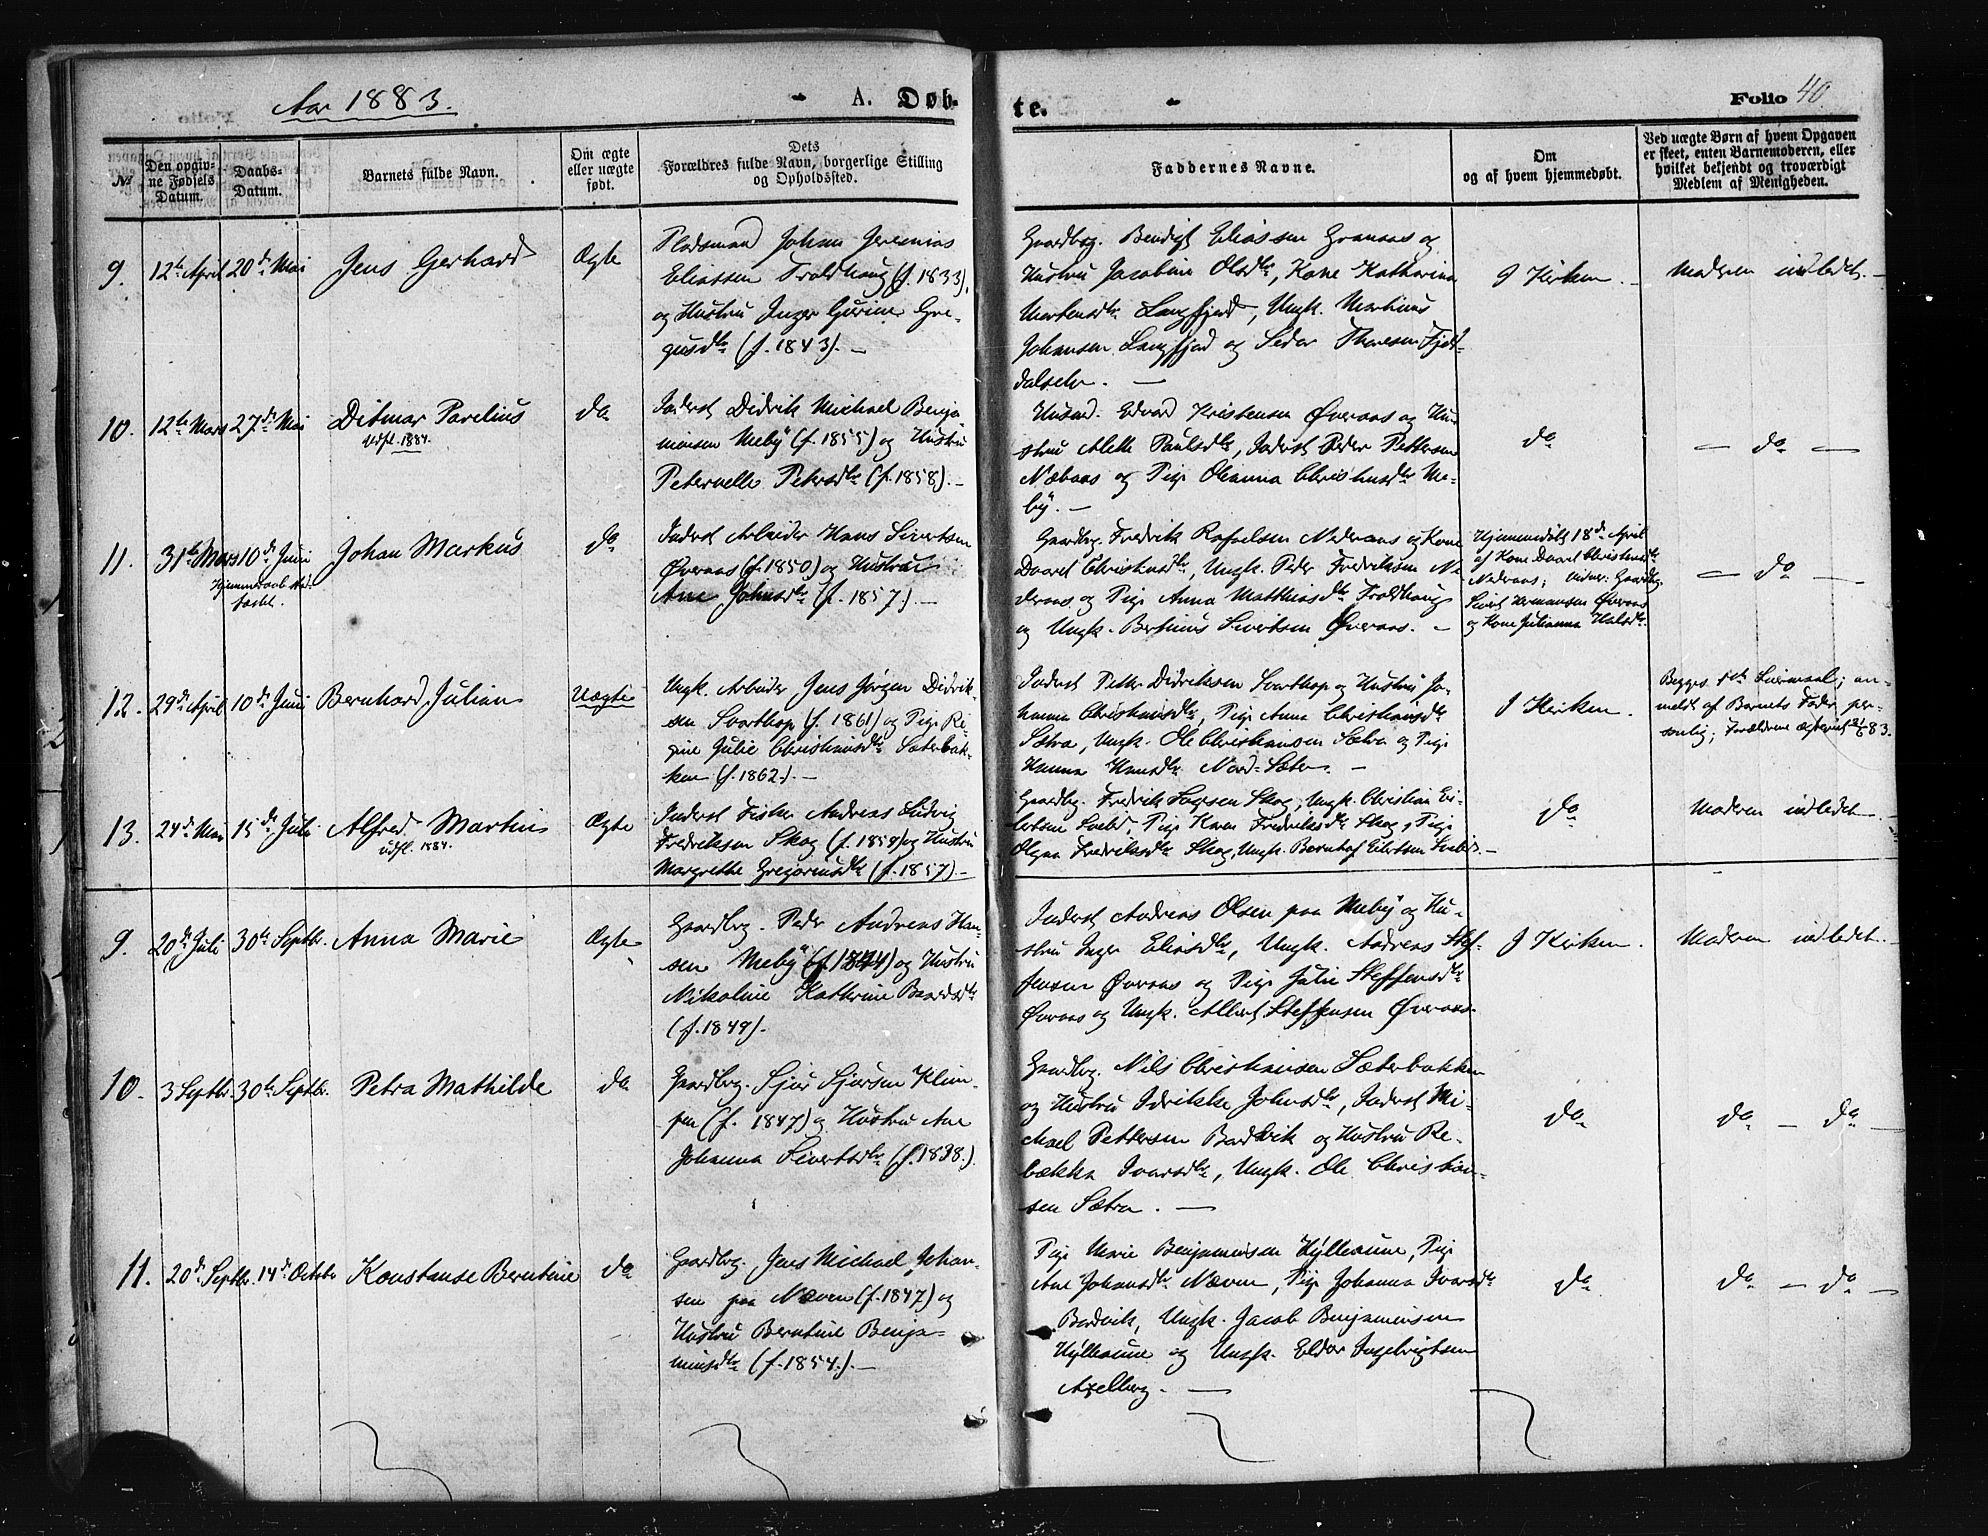 Aar 1883.
A. Døb-
te.
Folio 40.
№
Den opgiv-
ne Fødsels
Datum.
Daabs-
Datum.
Barnets fulde Navn.
Om ægte
eller uægte
født.
Dets
Forældres fulde Navn, borgerlige Stilling
og Opholdssted.
Faddernes Navne.
Om
og af hvem hjemmedøbt.
Ved uægte Børn af hvem Opgaven
er skeet, enten Barnemoderen, eller
hvilket bekjendt og troværdigt
Medlem af Menigheden.
9. 12te April 20de Mai Jens Gerhard Ægte
Pladsmand Johan Jeremias
Eliassen Troldhaug (f. 1833),
og Hustru Inger Gurine Gre-
gusdtr (f. 1843). —
Gaardbrg. Bendigt Eliassen Granaas og
Hustru Jacobine Olsdtr, Kone Katharina
Mortensdtr Langfjord, Ungk. Martinus
Johansen Langfjord og Peder Thoresen Fjel-
dalselv. —
I Kirken. —
Moderen indledet. —
10. 12te Mars 27de Mai Ditmar Parelius do
Udfl. 1884.
Inderst Didrik Michael Benja
minsen Meby (f. 1855) og Hustru
Peternelle Petersdtr (f. 1858). —
Husmd. Edvard Kristensen Øveraas og Hu-
stru Alette Paulsdtr, Inderst Peder Pettersen
Næbaas og Pige Oleanna Christensdtr Me-
by. —
do
— do —
11. 31te Mars 10de Juni Johan Markus do
Hjemmedaab stad-
fæstet.
Inderst Arbeider Hans Sivertsen
Øveraas (f. 1850) og Hustru
Ane Johnsdtr (f. 1857). —
Gaardbrg. Fredrik Rafaelsen Nederaas og Kone
Daaret Christensdtr, Ungk. Peder Fredriksen Ne
deraas og Pige Anna Matthiasdtr Troldhaug
og Ungk. Bertinus Sivertsen Øveraas. —
Hjemmedøbt 18de April
af Kone Daaret Christensdtr
Nederaas; Vidner: Gaardbrg.
Sivert Hermansen Øveraas
og Kone Julianna Halsdtr.
— do —
12. 29de April 10de Juni Bernhard Julian Uægte
Ungk. Arbeider Jens Jørgen Didrik-
sen Svarthop (f. 1861) og Pige Re-
gine Julie Christiansdtr Sæterbak-
ken (f. 1862). —
Inderst Petter Didriksen Svarthop og Hustru Jo-
hanna Christensdtr, Pige Anna Christiansdtr
Sætra, Ungk. Ole Christiansen Sætra og Pige
Hanna Hansdtr Nord-Sæter. —
I Kirken.
Begges 1ste Leiermaal; an-
meldt af Barnets Fader per-
sonlig; Forældrene ægteviet 83.
13. 24de Mai 15de Juli Alfred Martin Ægte
udfl. 1884.
Inderst Fisker Andreas Ludvig
Fredriksen Skog (f. 1859) og Hustru
Margrethe Gregoriusdtr (f. 1857) —
Gaardbrg. Fredrik Larsen Skog, Ungk. Christian Ei-
lertsen, Pige Karen Fredriksdtr Skog, Pige
Olgaa Fredriksdtr Skog, Ungk. Bernhof Eilertsen —
do
Moderen indledet. —
9. 20de Juli 30te Septbr. Anna Marie Ægte
Gaardbrg. Peder Andreas Han-
sen Meby (f. 1844) og Hustru
Nikoline Kathrine Baardsdtr
(f. 1849).
Inderst Andreas Olsen paa Meby og Hu-
stru Inger Eliasdtr, Ungk. Andreas Stef-
fensen Øveraas og Pige Julie Steffensdtr
Øveraas og Ungk. Albert Steffensen Øveraas.
I Kirken.
Moderen indledet. —
10. 3 Septbr. 30te Septbr. Petra Mathilde do
Gaardbrg. Sjur Sjursen Klum-
pen (f. 1847) og Hustru Ane
Johanna Sivertsdtr (f. 1838.)
Gaardbrg. Nils Christiansen Sæterbakken
og Hustru Idrikke Johnsdtr, Inderst Mi-
chael Pettersen Bardvik og Hustru Re-
bækka Ivarsdtr, Ungk. Ole Christian-
sen Sætra. —
do
do — do —
11. 20de Septbr. 14de October Konstanse Berntine do
Gaardbrg. Jens Michael Johan-
sen paa Næven (f. 1847) og
Hustru Berntine Benja-
minsdtr (f. 1854.). —
Pige Marie Benjaminsen Hylleaune, Pige
Ane Johansdtr Næven, Pige Johanna Ivarsdtr
Bardvik, Ungk. Jacob Benjaminsen
Hylleaune og Ungk. Eldor Ingebrigtsen
Axelberg. —
do
do — do —